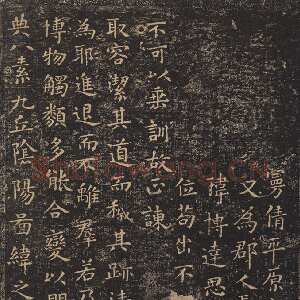 曼倩平原
又為郡人
瑋博達思
位苟出不
不可以垂訓故正諫
取容潔其道而穢其跡清
為耶進退而不離羣若乃
博物觸類多能合變以明
典八素九丘陰陽圖緯之